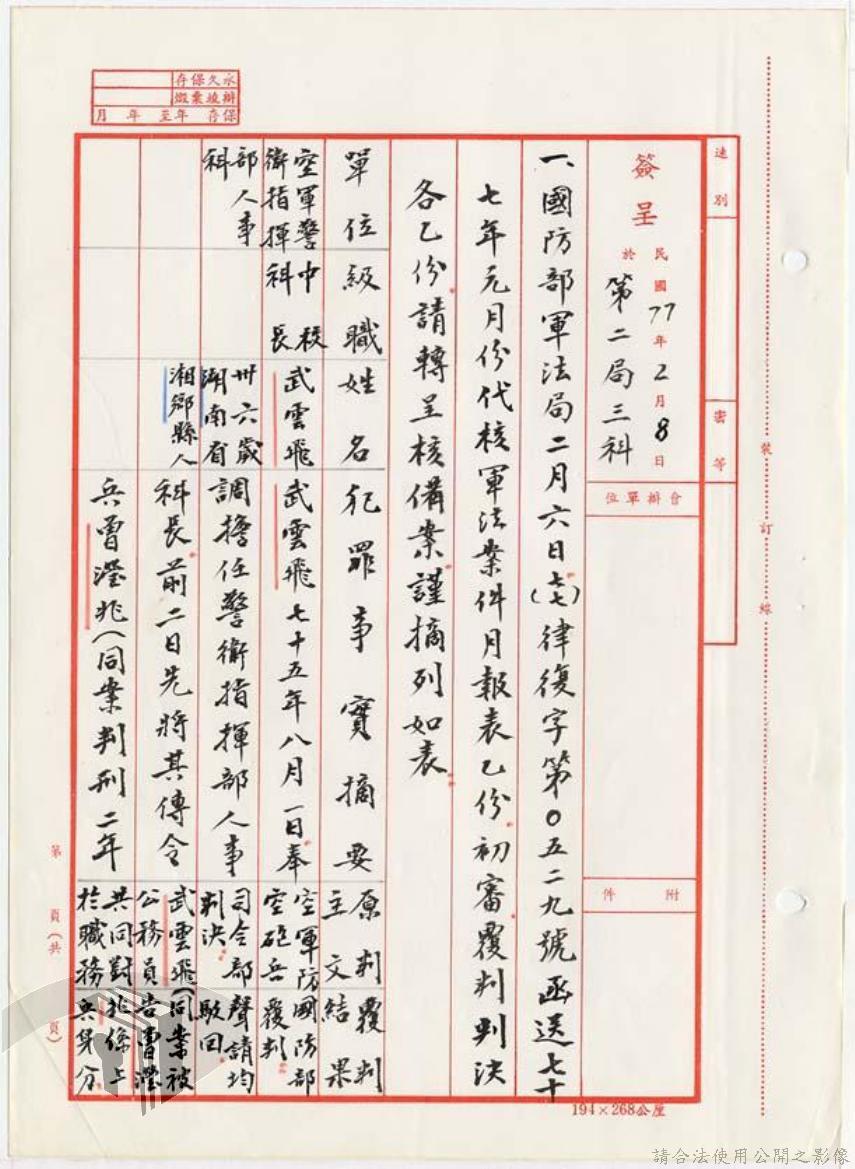 永久保存
辦竣彙燬
保存 年至 年 月
速別
密等
簽呈
民國77年2月8日
於第二局三科
會辦單位
附件
一、國防部軍法局二月六日(七七)律復字第0五二九號函送七十
七年元月份代核軍法案件月報表乙份初審覆判判決
各乙份請轉呈核備案謹摘列如表
單位
級職
姓名
犯罪事實摘要
原判主文
覆判結果
空軍警
衛指揮
部人事
科
中校
科長
武雲飛
卅六歲
湖南省
湘鄉縣人
武雲飛七十五年八月一日奉
調擔任警衛指揮部人事
科長前二日先將其傳令
兵曹瀅兆(同案判刑二年
空軍防
空砲兵
司令部
判決
武雲飛
公務員
共同對
於職務
國防部
覆判
聲請均
駁回
(同案被
告曹瀅
兆係士
兵身分
裝訂線
第 頁(共 頁)
194×268公厘
請合法使用公開之影像